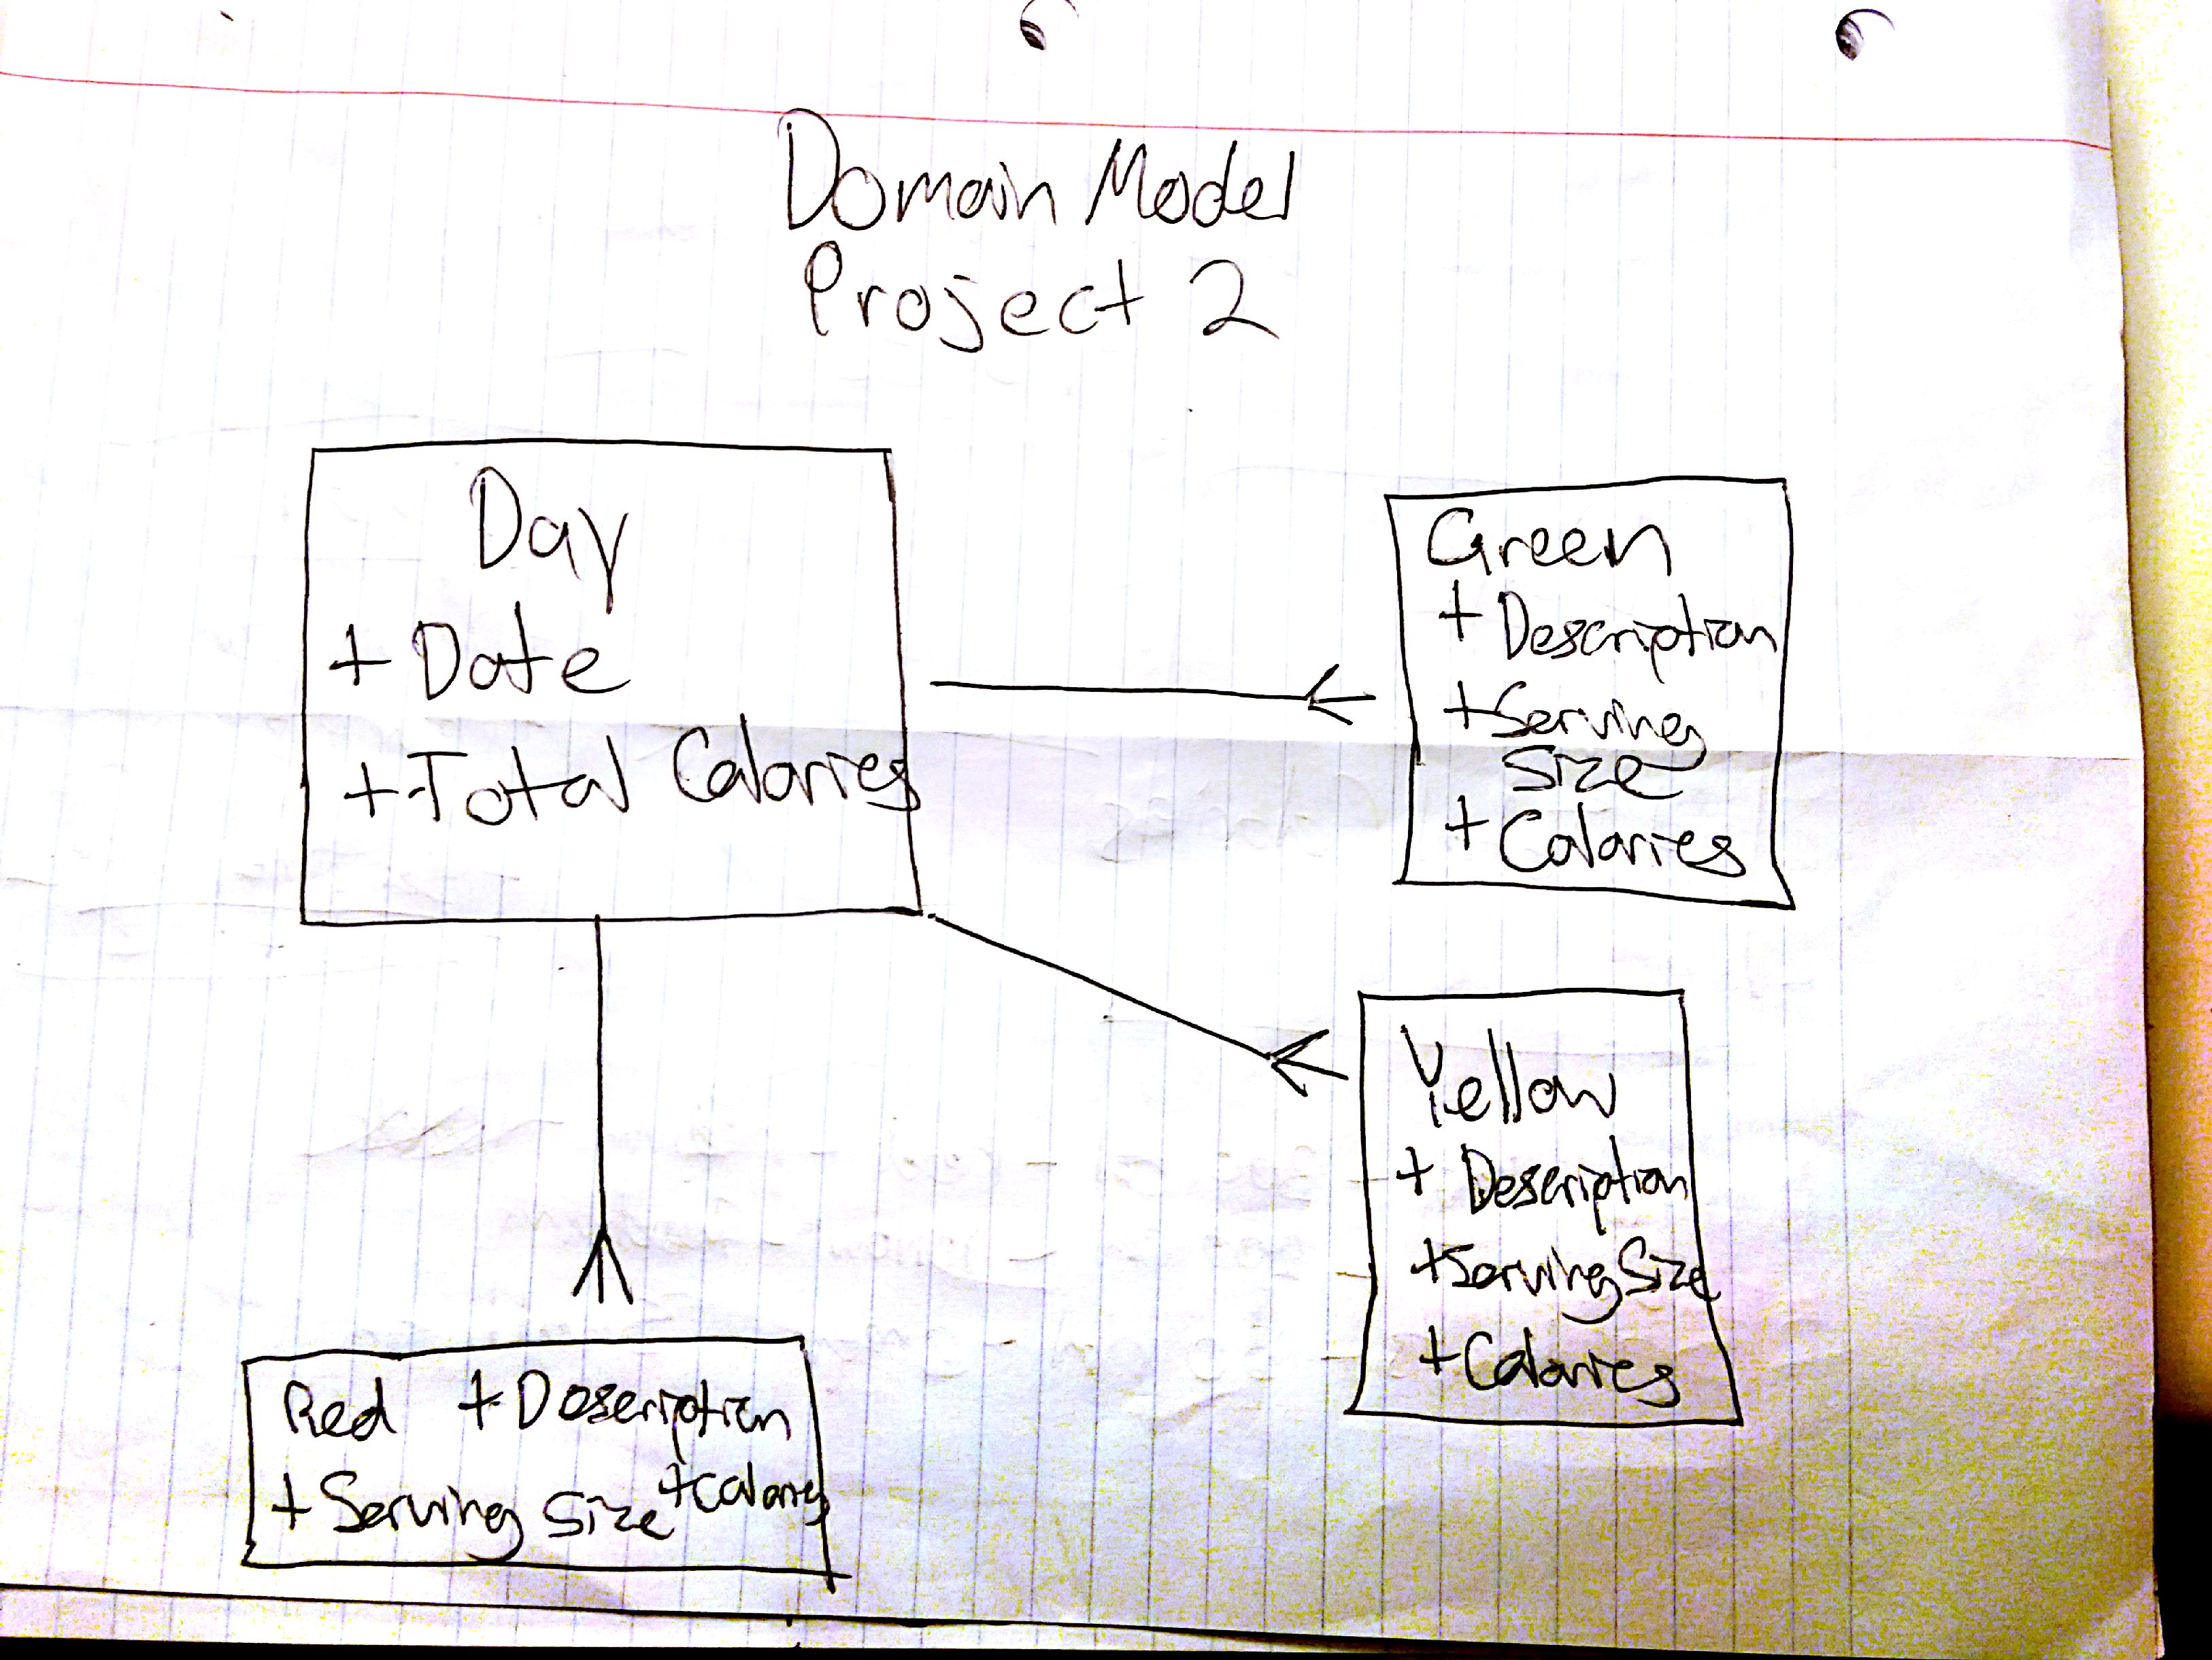 Domain Model
Project 2
Day
+ Date
+ Total Calories
Green
+ Description
+ Serving
Size
+ Calories
Yellow
+ Description
+ Serving Size
+ Calories
Red + Description
+ Serving Size + Calories